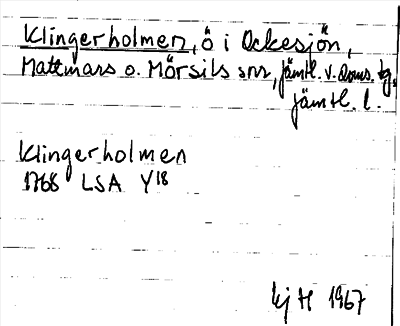 Klingerholmen, ö i Ockesjön,
Mattmars o. Mörsils snr, jämtl. v. doms. tg,
jämtl. l.
Klingerholmen
1768 LSA Y18
kj H 1967